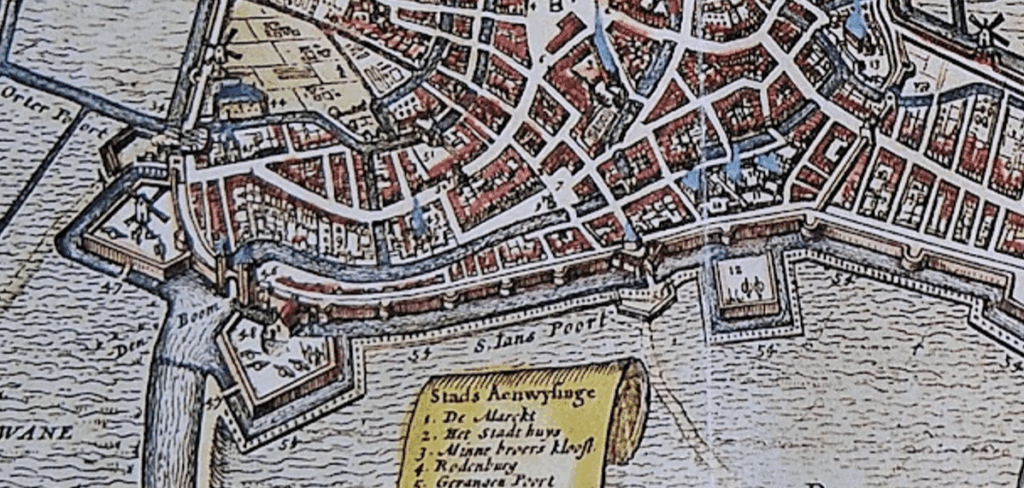 Orter Poort
44
51
12
47
Boom
Den
46
54
S. Ians Poort
54
54
47
54
WANE
Stads Aenwysinge
1. De Marckt
2. Het Stadt huys
3. Minne broers kloost.
4. Rodenburg
5. Gevangen Poort